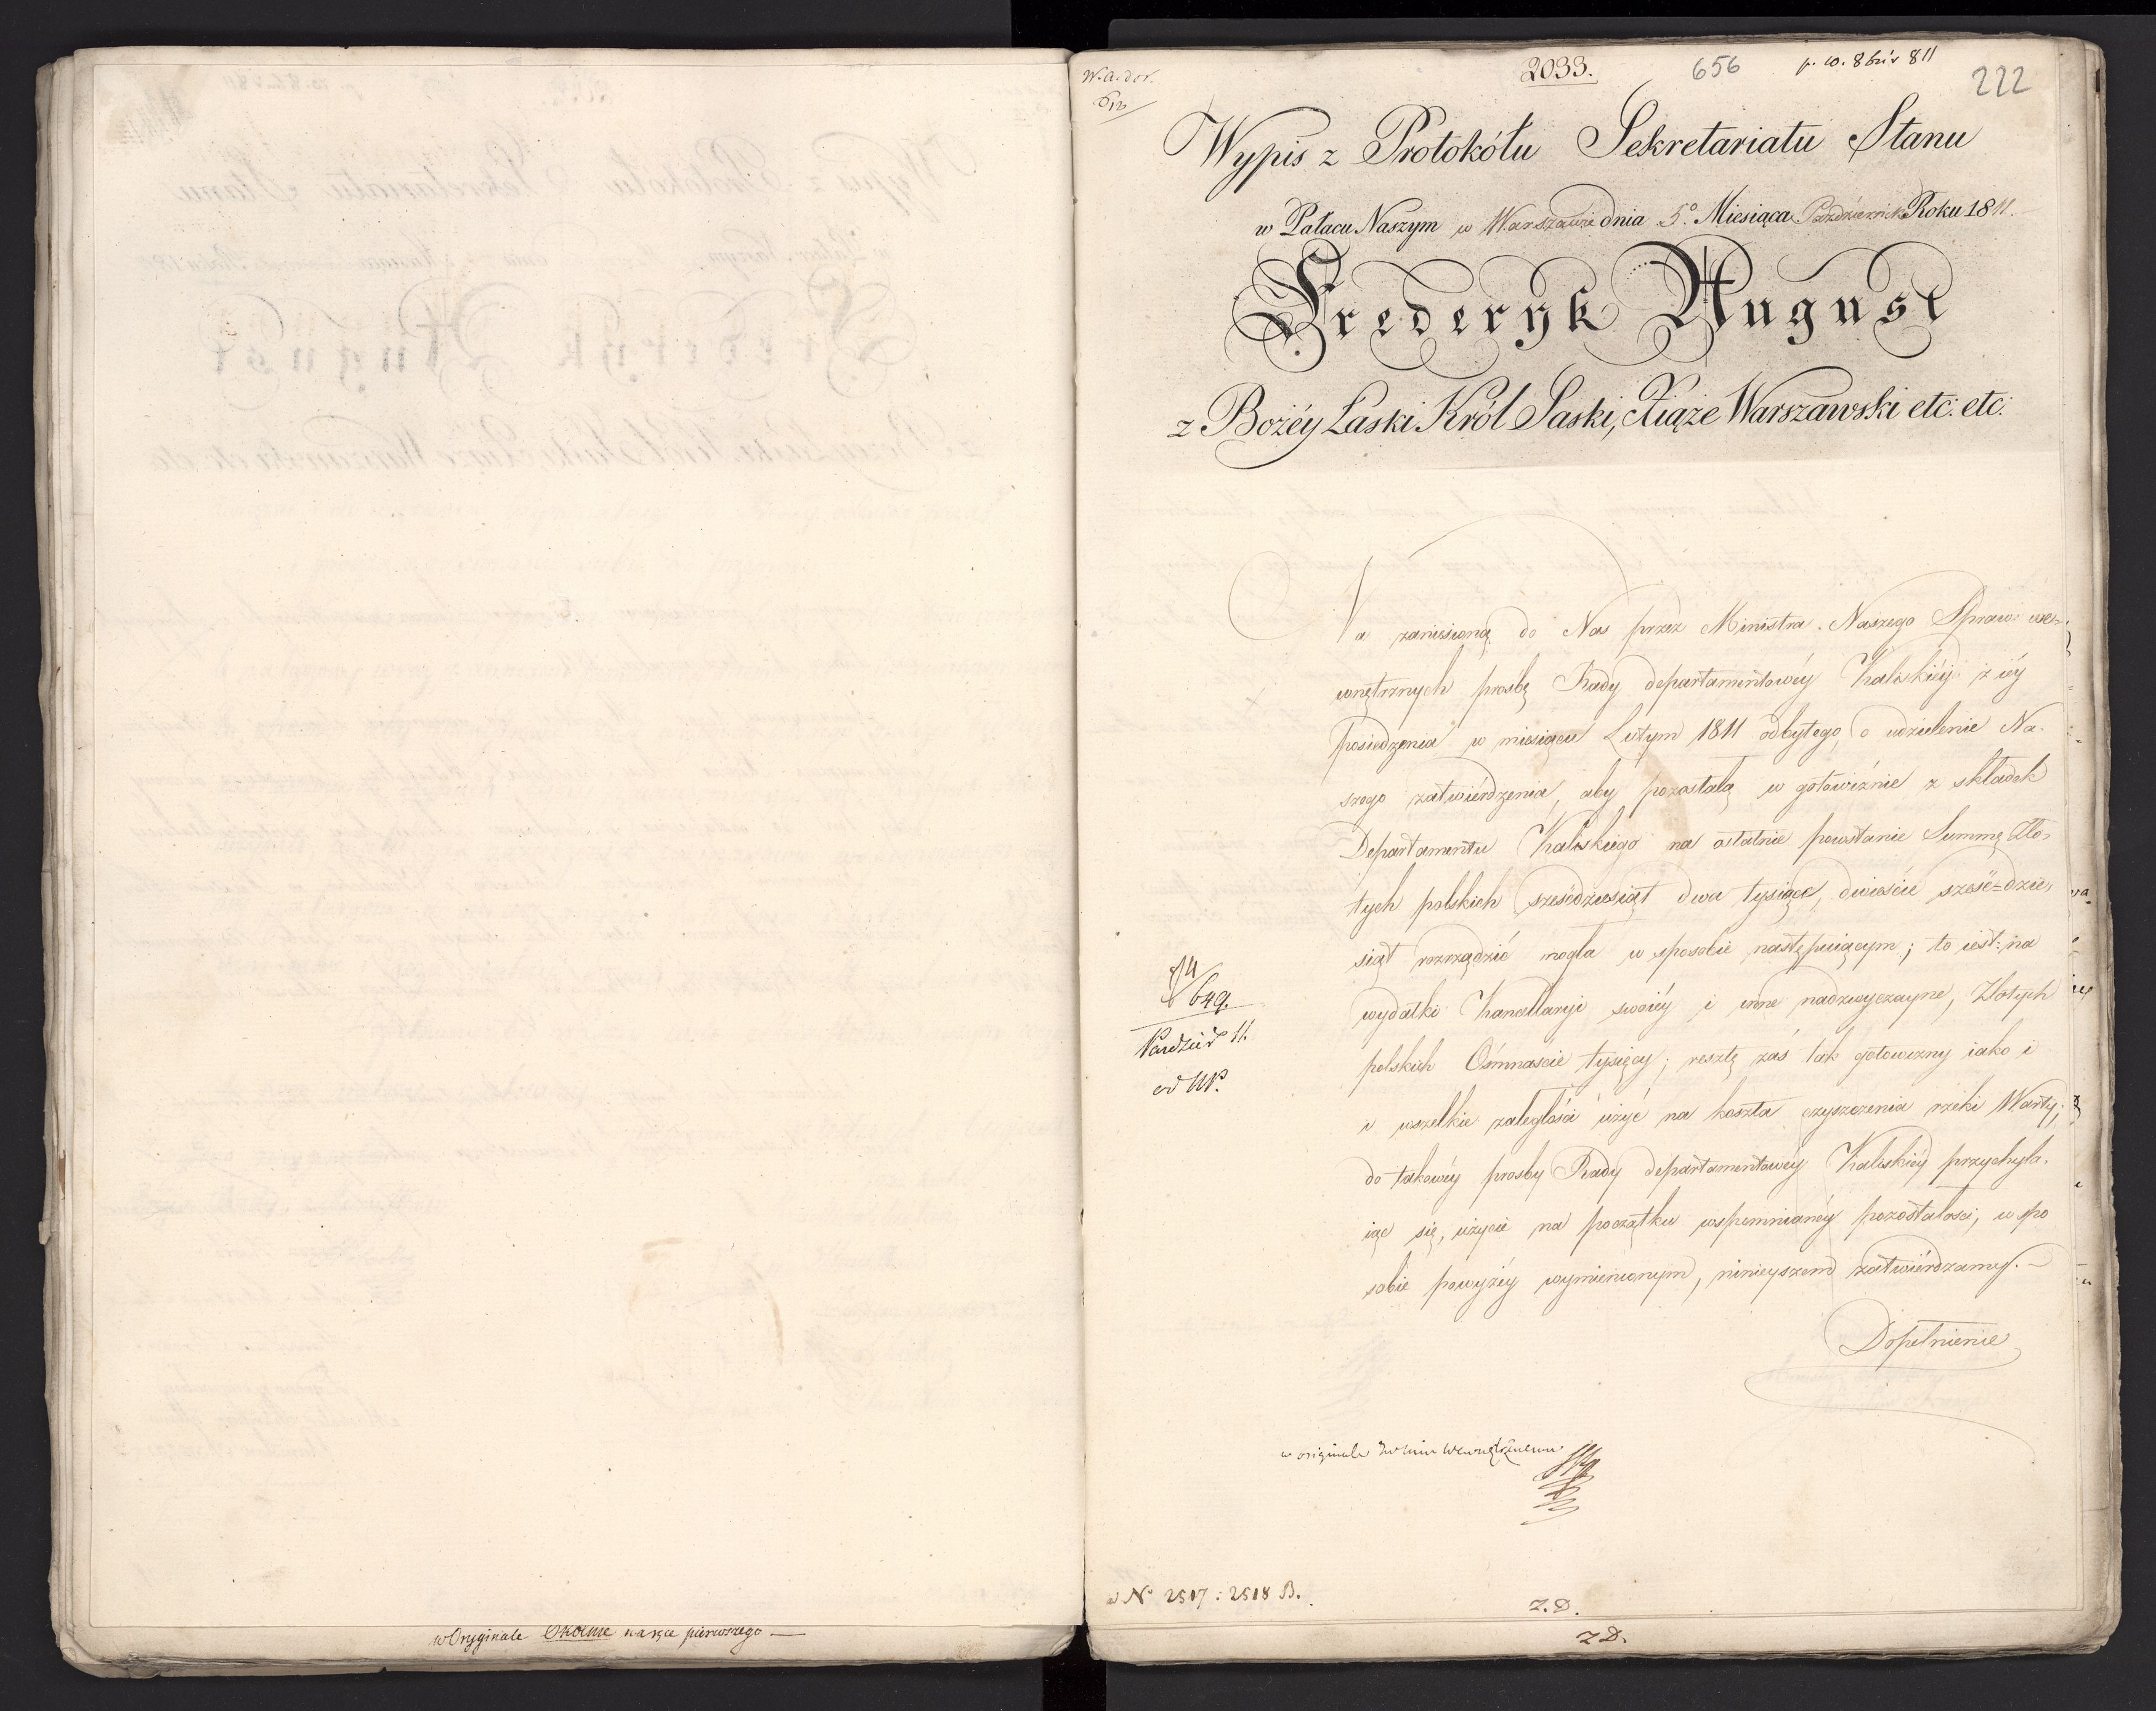 w Oryginale
pierwszego —
2033.
656
p. 10. 8br 811
222
Wypis z Protokółu Sekretariatu Stanu
w Pałacu Naszym w Warszawie dnia 5º Miesiąca Październik Roku 1811.
Frederyk August
z Bożéy Łaski Król Saski, Xiąże Warszawski etc: etc:
Na zaniesioną do Nas przez Ministra Naszego Spraw we-
wnętrznych prośbę Rady departamentowéy Kaliskiéy z iéy
posiedzenia w miesiącu Lutym 1811 odbytego, o udzielenie Na-
szego zatwiérdzenia, aby pozostałą w gotowiźnie z składek
Departamentu Kaliskiego na ostatnie powstanie Summę Zło-
tych polskich sześćdziesiąt dwa tysiące, dwieście sześć=dzie-
siąt rozrządzić mogła w sposobie następuiącym; to iest: na
wydatki Kancellaryi swoiéy i inne nadzwyczayne, Złotych
polskich Ośmnaście tysięcy; resztę zaś tak gotowizny iako i
i wszelkie zaległości użyć na koszta czyszczenia rzeki Warty;
do takowéy prośby Rady departamentowéy Kaliskiéy przychyla-
iąc się, użycie na początku wspomnianéy pozostałości, w spo
sobie powyżéy wymienionym, ninieyszem zatwiérdzamy. —
Dopełnienie
649.
Paździer 11.
w originale
w Nº 2517 : 2518 B.
Z. D.
Z D.